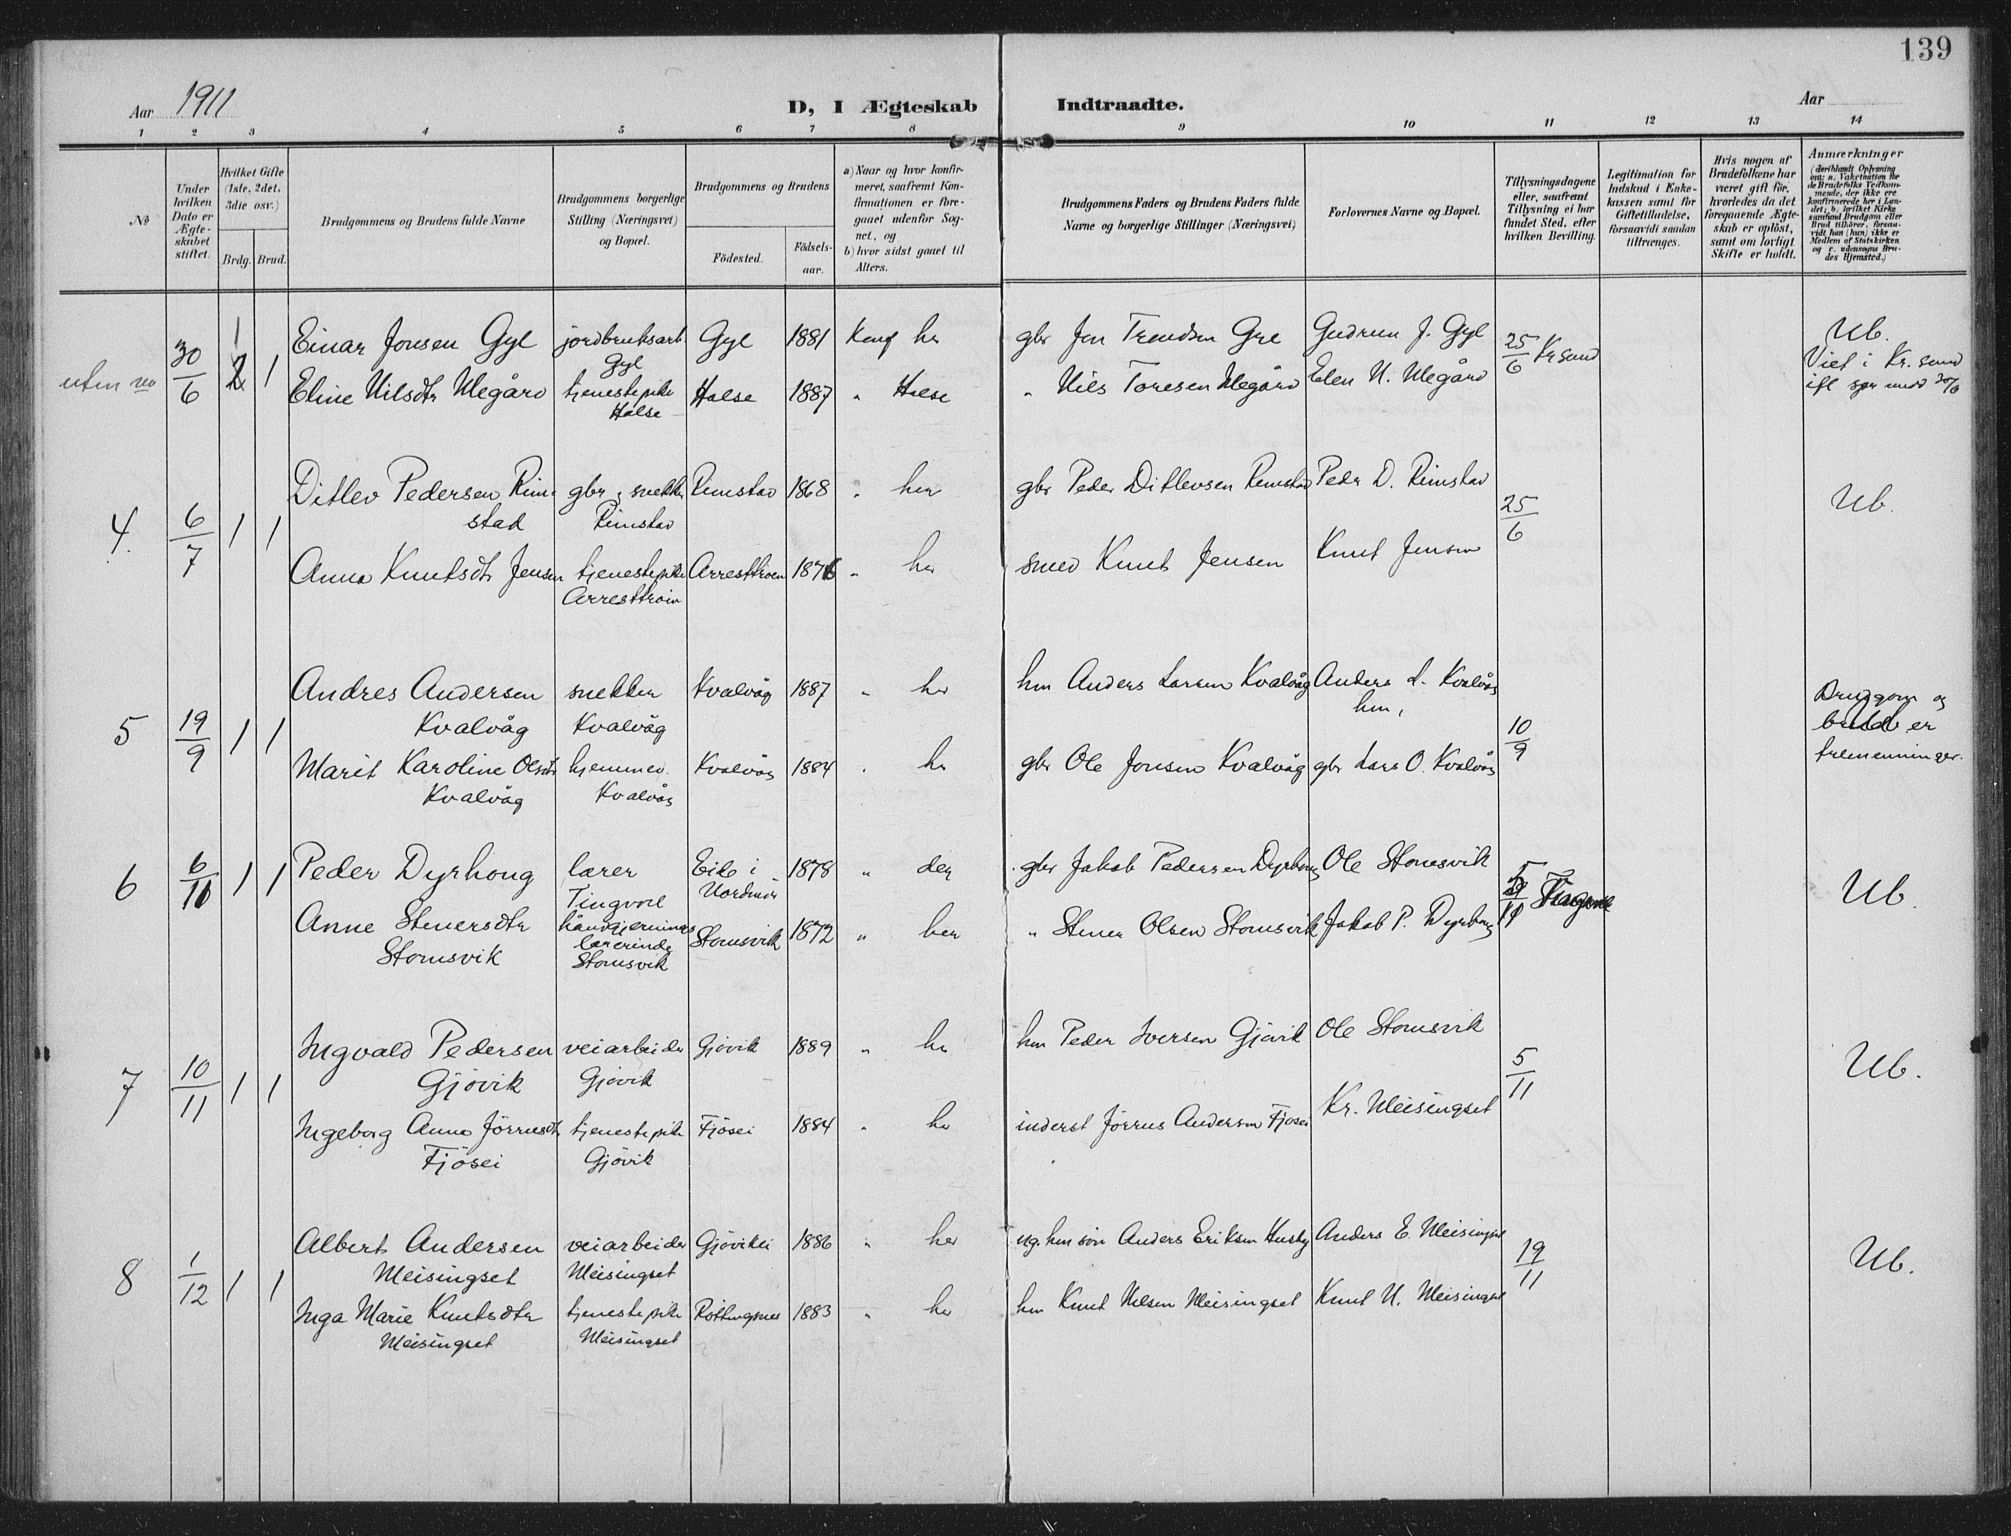 139
Aar 1911
D, I Ægteskab Indtraadte.
Aar
1 2 3 4 5 6 7 8 9 10 11 12 13 14
No
Under hvilken Dato er Ægte-skabet stiftet.
Hvilket Gifte (1ste, 2det, 3die osv.)
Brdg. Brud.
Brudgommens og Brudens fulde Navne
Brudgommens borgerlige Stilling (Næringsvei) og Bopæl.
Brudgommens og Brudens
Födested.
Födsels-aar.
a) Naar og hvor konfir-meret, saafremt Kon-firmationen er fore-gaaet udenfor Sog-net, og
b) hvor sidst gaaet til Alters.
Brudgommens Faders og Brudens Faders fulde Navne og borgerlige Stillinger (Næringsvei)
Forlovernes Navne og Bopæl.
Tillysningsdagene eller, saafremt Tillysning ei har fundet Sted, efter hvilken Bevilling.
Legitimation for Indskud i Enke-kassen samt for Giftetilladelse, forsaavidt saadan tiltrænges.
Hvis nogen af Brudefolkene har været gift för, hvorledes da det foregaaende Ægte-skab er oplöst, samt om lovligt Skifte er holdt.
Anmærkninger
(deriblandt Oplysning om: a. Vakcination for de Brudefolks Vedkom-mende, der ikke ere konfirmerede her i Lan-det; b. hvilket Kirke-samfund Brudgom eller Brud tilhörer, forsaa-vidt han (hun) ikke er Medlem af Statskirken og c. udensogns Bru-des Hjemsted.)
uten no 30/6 1 1 Einar Jonsen Gyl jordbruksarb. Gyl Gyl 1881 Konf her gbr Jon Trondsen Gyl Gudrun J. Gyl 25/6 Kr sund Ub.
Viet i Kr. sund
Eline Nilsdtr Megård tjenestepike Halse Halse 1887 " Halse " Nils Toresen Megård Elen N. Megård
4. 6/7 1 1 Ditlev Pedersen Rimstad gbr, snekker Rimstad Rimstad 1868 " her gbr Peder Ditlevsen Rimstad Peder D. Rimstad 25/6 Ub.
Anna Knutsdtr Jensen tjenestepike Arresttroen Arresttroen 1876 " her smed Knut Jensen Knut Jensen
5 19/9 1 1 Andres Andersen Kvalvåg snekker Kvalvåg Kvalvåg 1887 " her hm Anders Larsen Kvalvåg Anders L. Kvalvåg hm, 10/9 Brudgom og brud er fremenninger.
Marit Karoline Olsdtr Kvalvåg hjemmev. Kvalvåg Kvalvåg 1884 " her gbr Ole Jonsen Kvalvåg gbr Lars O. Kvalvåg
6 6/11 1 1 Peder Dyrhoug lærer Tingvoll Eide i Nordmör 1878 " der gbr Jakob Pedersen Dyrhoug Ole Stomsvik Tingvoll Ub.
Anne Steuersdtr Stomsvik håndgjernings lærerinde Stomsvik Stomsvik 1872 " her " Steuer Olsen Stomsvik Jakob P. Dyrhoug
7 10/11 1 1 Ingvald Pedersen Gjövik veiarbeider Gjövik Gjövik 1889 " her hm Peder Iversen Gjövik Ole Stomsvik 5/11 Ub.
Ingeborg Anna Jörnusdtr Fjösei tjenestepike Gjövik Fjösei 1884 " her inderst Jörnus Andersen Fjösei Kr. Meisingset
8 1/12 1 1 Albert Andersen Meisingset veiarbeider Meisingset Gjövikei 1886 " her ug. hm sön Anders Eriksen Husby Anders E. Meisingset 19/11 Ub.
Inga Marie Knutsdtr Meisingset tjenestepike Meisingset Röttingsnes 1883 " her hm Knut Nilsen Meisingset Knut N. Meisingset